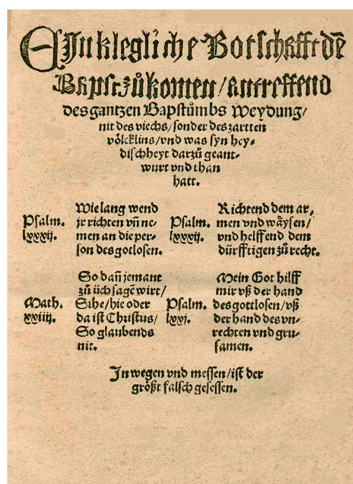 EJn klegliche Botschafft dē
Bapst zůkomen/antreffend
des gantzen Bapstůmbs Weydung/
nit des viechs/sonder des zartten
völcklins/vnd was syn hey-
dischheyt darzů geant-
wurt vnd than
hatt.
Psalm. lxxxij.
Wie lang wend
jr richten vñ ne-
men an die per-
son des gotlosen.
Psalm. lxxxij.
Richtend dem ar,
men vnd wäysen/
vnd helffend dem
dürfftigen zů recht.
Math. xxiiij.
So dañ jemant
zů üch sagē wirt/
Sihe/hie oder
da ist Christus/
So glaubends
nit.
Psalm. lxxi.
Mein Got hilff
mir vß der hand
des gottlosen/vß
der hand des vn-
rechten vnd gru-
samen.
Jn wegen vnd messen/ist der
größt falsch gesessen.